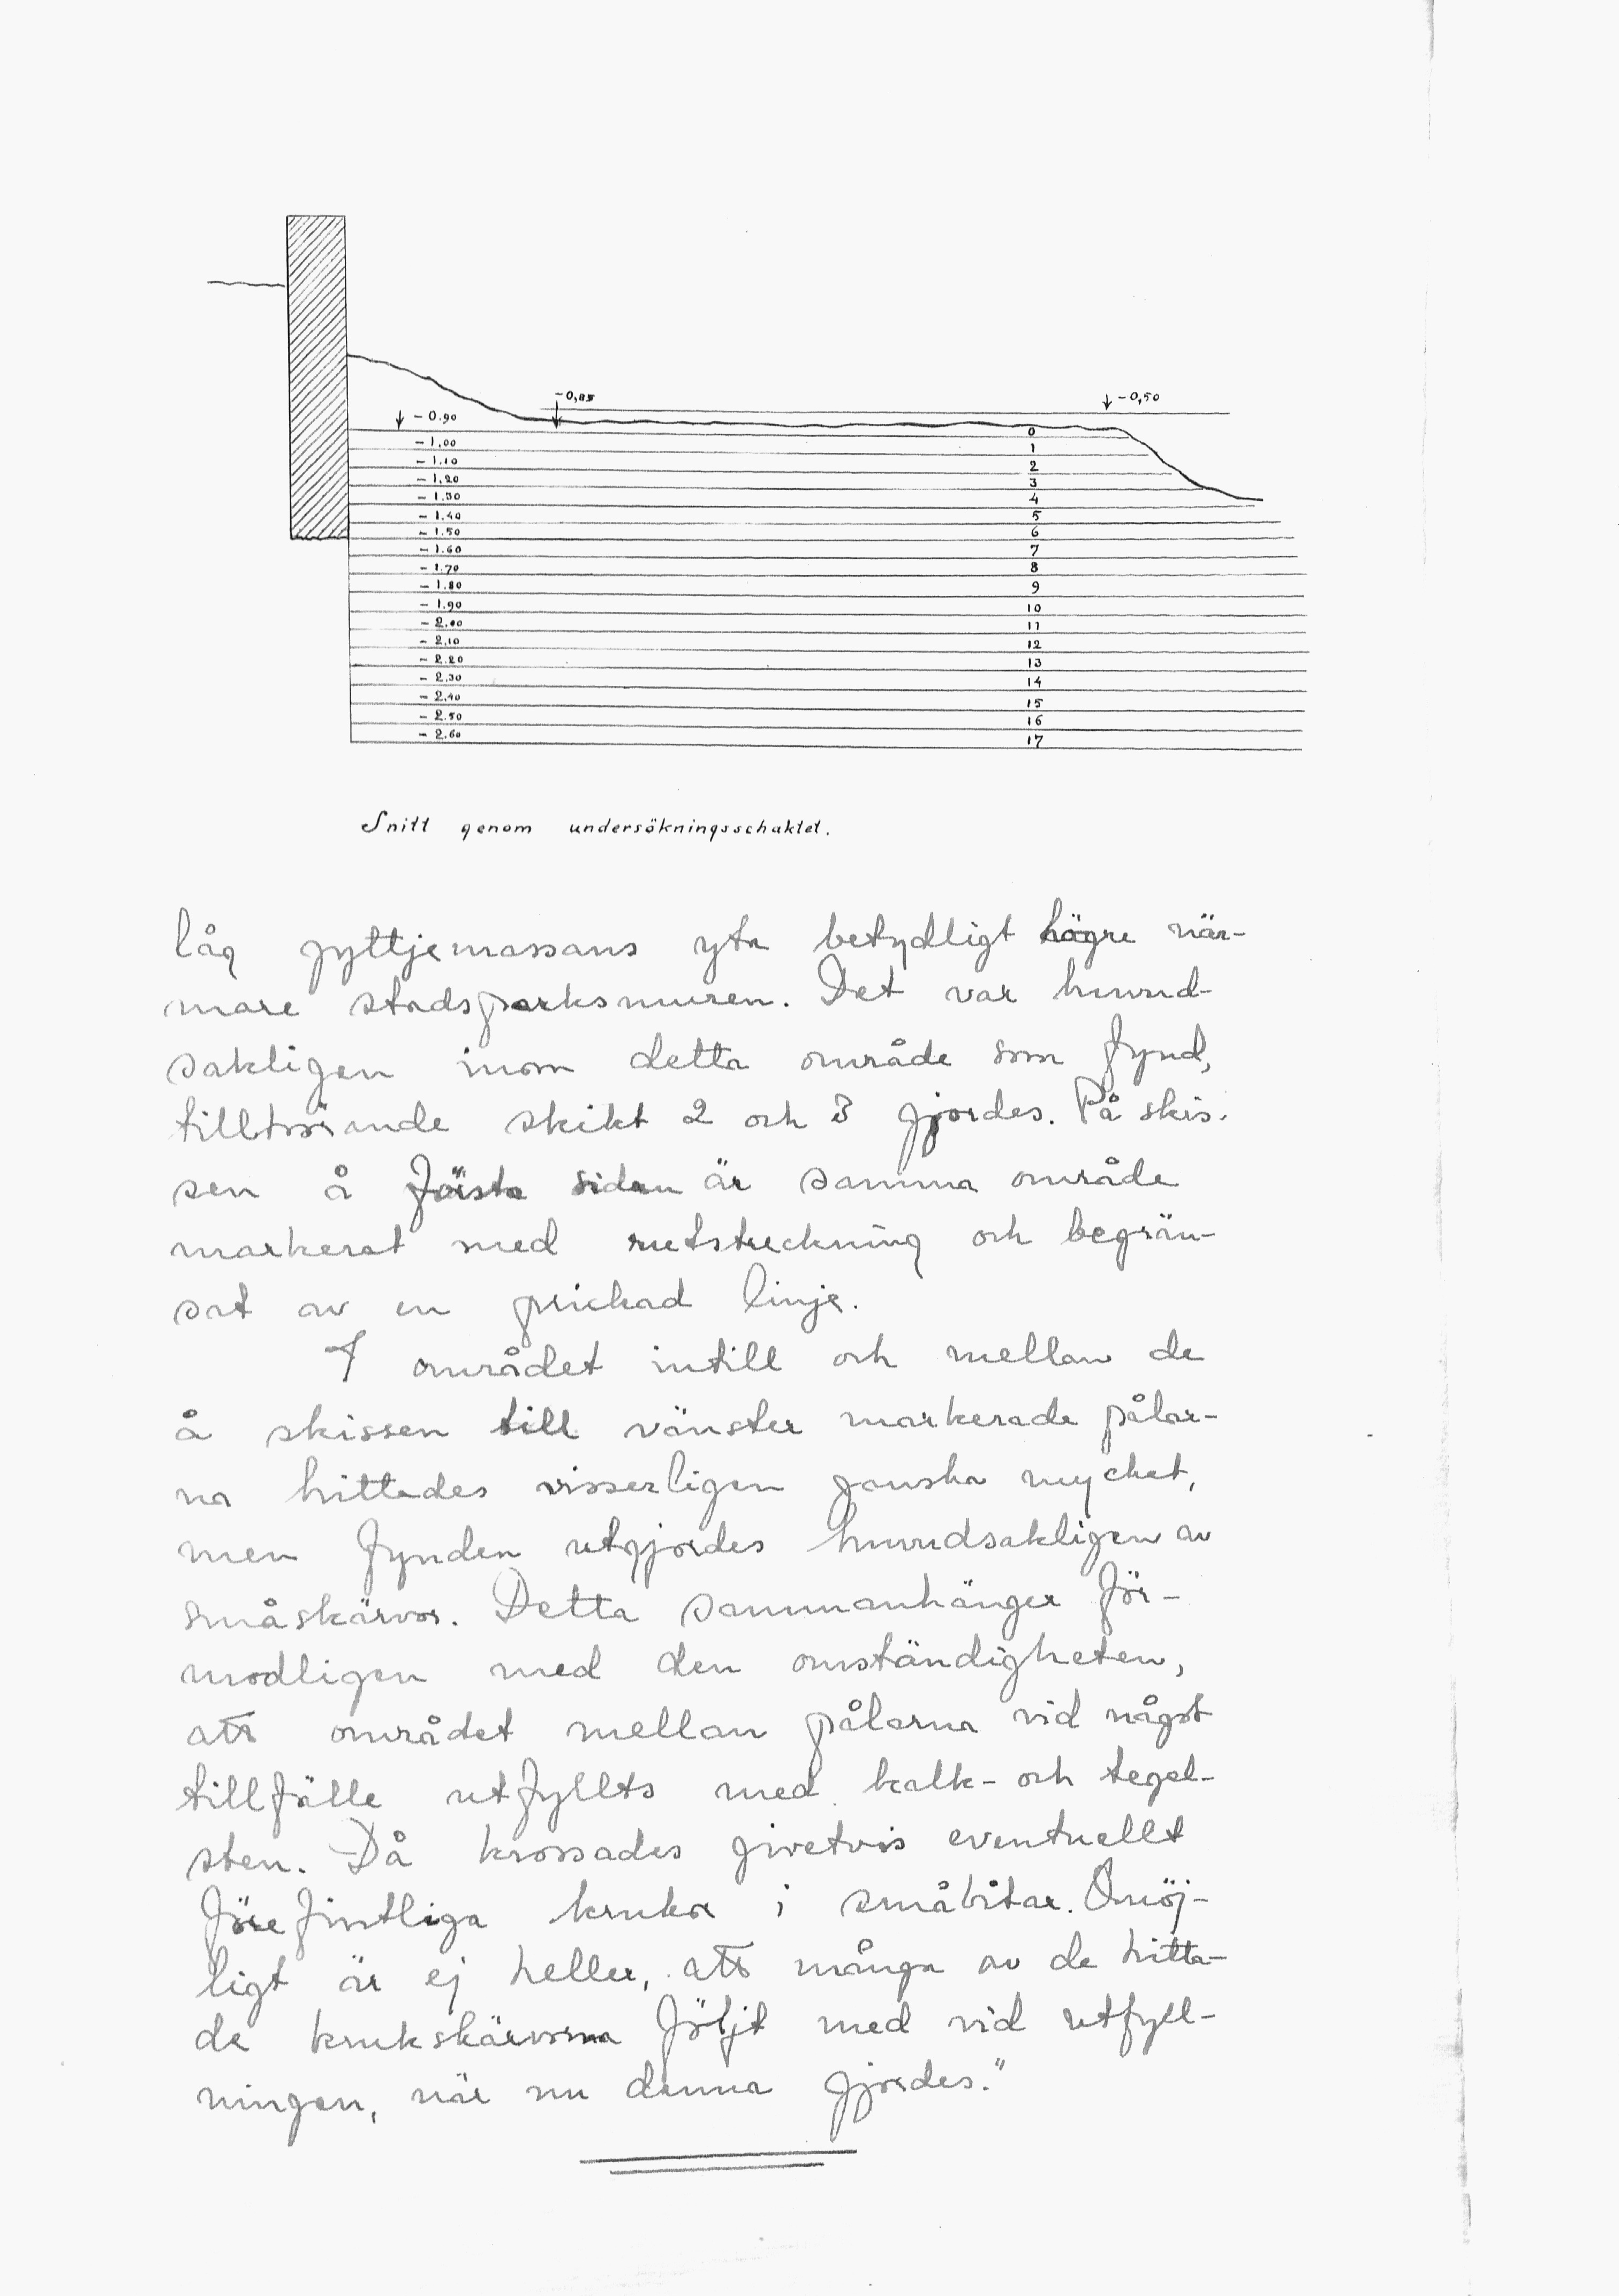 -0,85
-0,50
-0.90
0
-1.00
1
-1.10
2
-1.20
3
-1.30
4
-1.40
5
-1.50
6
-1.60
7
-1.70
8
-1.80
9
-1.90
10
-2.00
11
-2.10
12
-2.20
13
-2.30
14
-2.40
15
-2.50
16
-2.60
17
Snitt genom undersökningsschaktet.
låg gyttjemassans yta betydligt högre när-
mare stadsparksmuren. Det var huvud-
sakligen inom detta område som fynd,
tillhörande skikt 2 och 3 gjordes. På skis-
sen å första sidan är samma område
markerat med rutstreckning och begrän-
sat av en prickad linje.
I området intill och mellan de
å skissen till vänster markerade pålar-
na hittades visserligen ganska mycket,
men fynden utgjordes huvudsakligen av
småskärvor. Detta sammanhänger för-
modligen med den omständigheten,
att området mellan pålarna vid något
tillfälle utfyllts med kalk- och tegel-
sten. Då krossades givetvis eventuellt
förefintliga krukor i småbitar. Omöj-
ligt är ej heller, att många av de hitta-
de krukskärvorna följt med vid utfyll-
ningen, när nu denna gjordes."